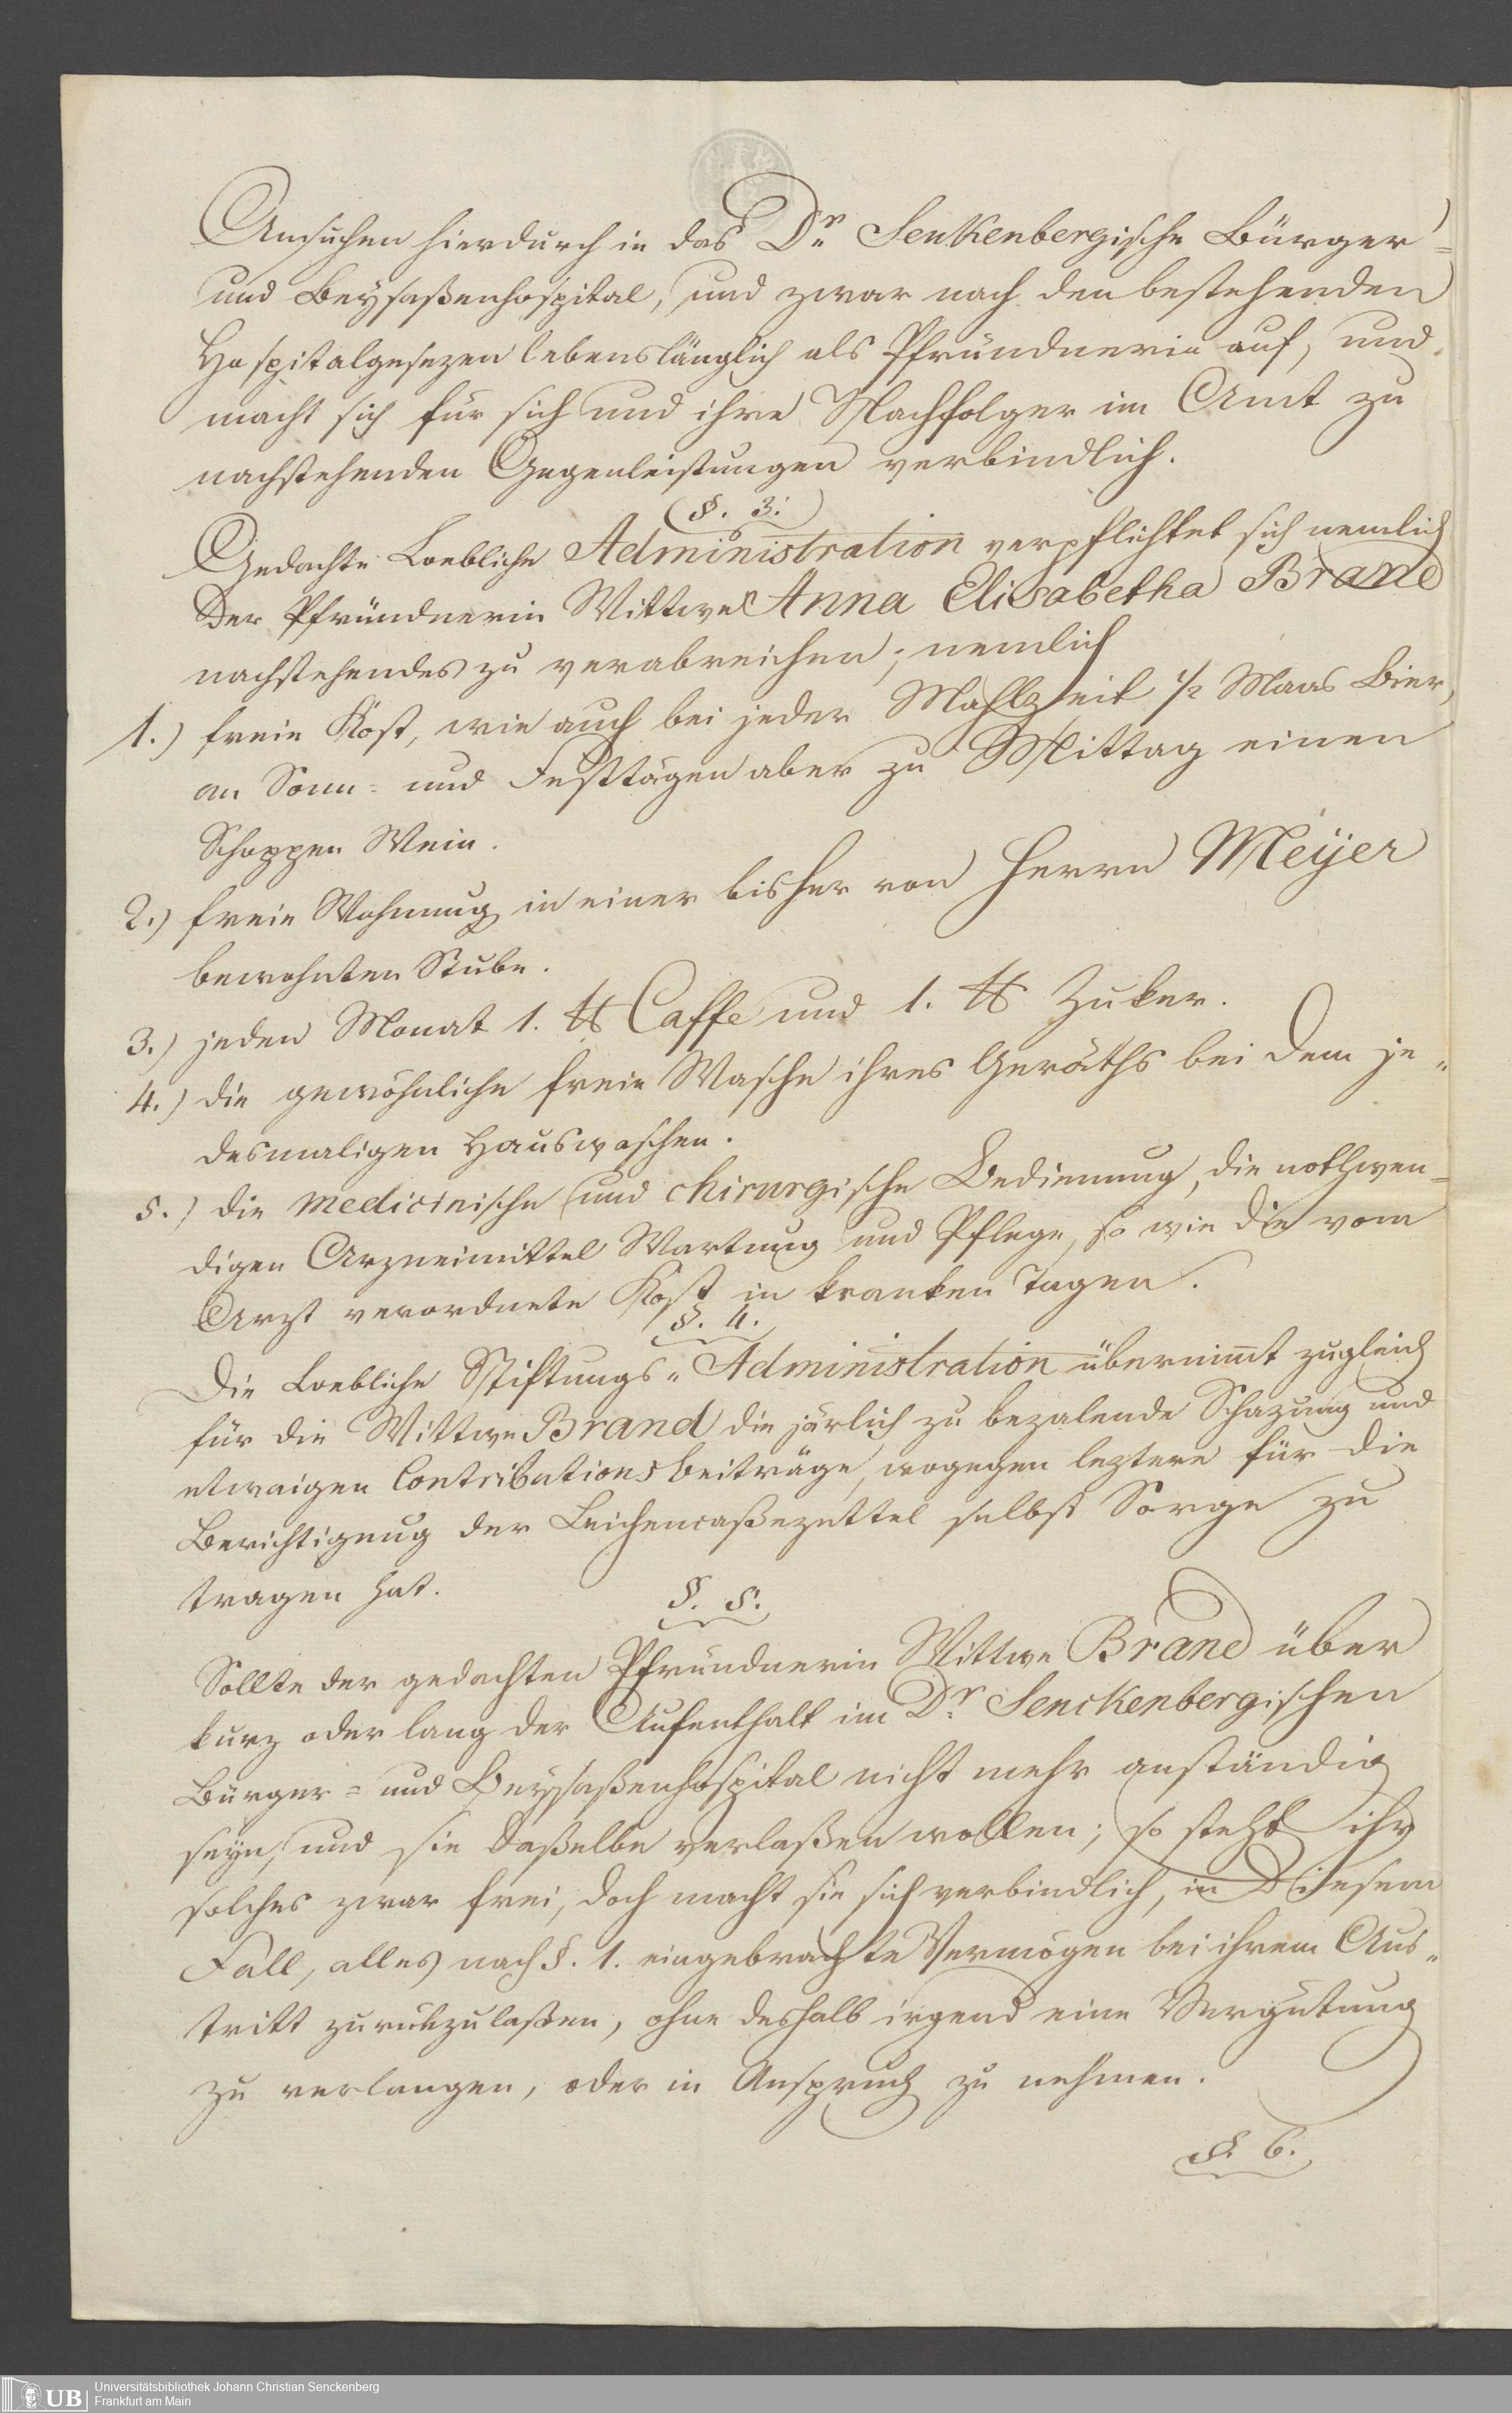 Ansuchen hierdurch in das Dr. Senkenbergische Bürger=
und Beysaßenhospital, und zwar nach den bestehenden
Hospitalgesezen lebenslänglich als Pfründnerin auf, und
macht sich für sich und ihre Nachfolger im Amt zu
nachstehenden Gegenleistungen verbindlich.
§. 3.
Gedachte Loebliche Administration verpflichtet sich nemlich
der Pfründnerin Wittwe Anna Elisabetha Brand
nachstehendes zu verabreichen; nemlich
1.) freie Kost, wie auch bei jeder Mahlzeit 1/2 Maas Bier,
an Sonn= und Festtägen aber zu Mittag einen
Schoppen Wein.
2.) freie Wohnung in einer bisher von Herrn Meyer
bewohnten Stube.
3.) jeden Monat 1. ℔ Caffe und 1. ℔ Zuker.
4.) die gewöhnliche freie Wasche ihres Geräths bei dem je„
desmaligen Hauswaschen.
5.) die medicinische und chirurgische Bedienung, die nothwen=
digen Arzneimittel Wartung und Pflege, so wie die vom
Arzt verordnete Kost in kranken Tagen.
§. 4.
Die Loebliche Stiftungs„ Administration übernim̅t zugleich
für die Wittwe Brand die järlich zu bezalende Schazung und
etwaigen Contributionsbeiträge, wogegen leztere für die
Berichtigung der Leichencaßezettel selbst Sorge zu
tragen hat.
§. 5.
Sollte der gedachten Pfründnerin Wittwe Brand über
kurz oder lang der Aufenthalt im Dr. Senckenbergischen
Bürger= und Beysaßenhospital nicht mehr anständig
seyn, und sie daßelbe verlaßen wollen; so steht ihr
solches zwar frei, doch macht sie sich verbindlich, in diesem
Fall, alles nach §. 1. eingebrachte Vermögen bei ihrem Aus„
tritt zurükzulaßen, ohne deshalb irgend eine Vergütung
zu verlangen, oder in Anspruch zu nehmen.
§. 6.
UB Universitätsbibliothek Johann Christian Senckenberg
Frankfurt am Main